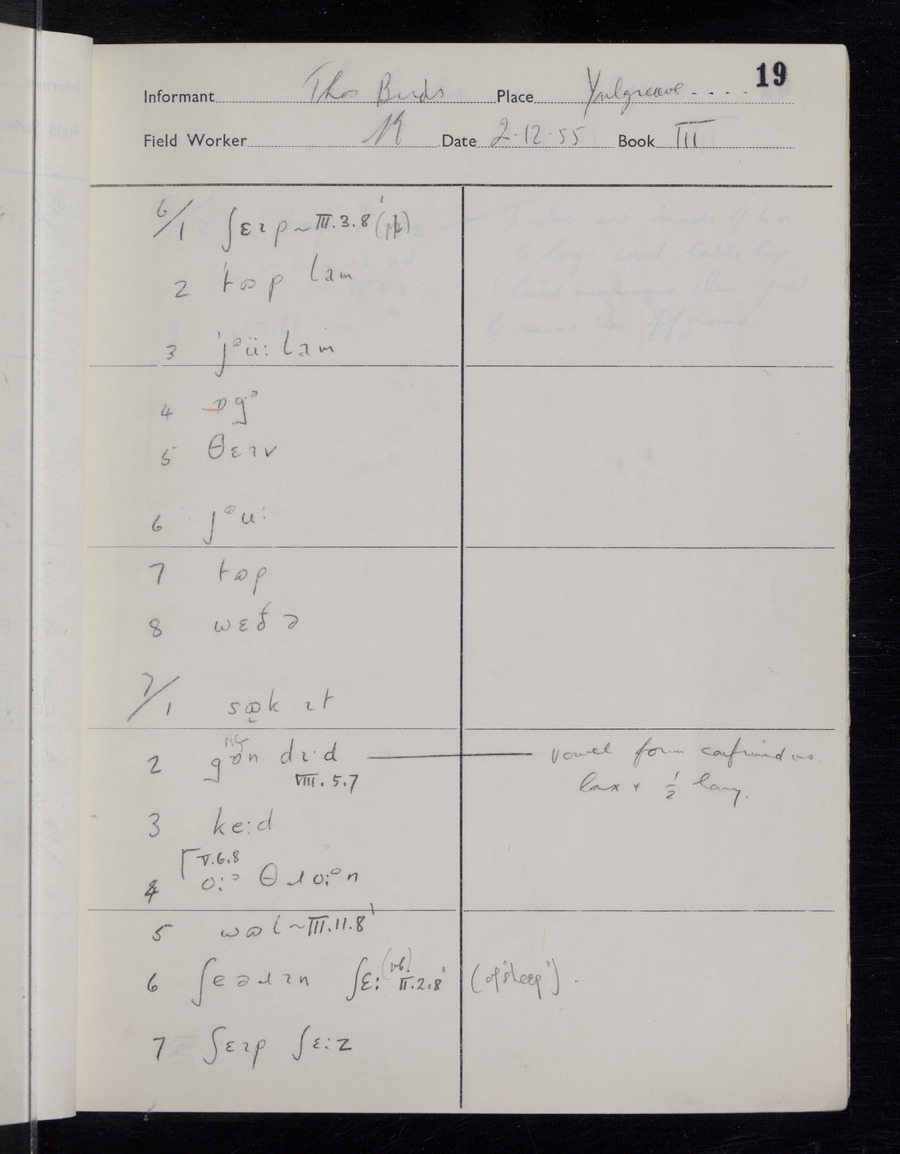 19
Informant Thos Birds Place Youlgreave
Field Worker Date 2.12.55 Book III
6/1 ʃɛɪp ~ III.3.8 (pl)
2 tɒp lam
3 jᵊü: lam
4 ɒgᵊ
5 θɛɪv
6 jᵊu:
7 tɷp
8 wɛðə
7/1 sɷk ɪt
2 gɒn dɪ·d vowel form confirmed as
VIII.5.7 lax + ½ long.
3 ke:d
V.6.8
4 o:ᵊ θɹo:ᵊn
5 wɷl ~ III.11.8
6 ʃeəɹɪn ʃɛ: (vb) II.2.8 (of "sheep").
7 ʃɛɪp ʃɛ:z